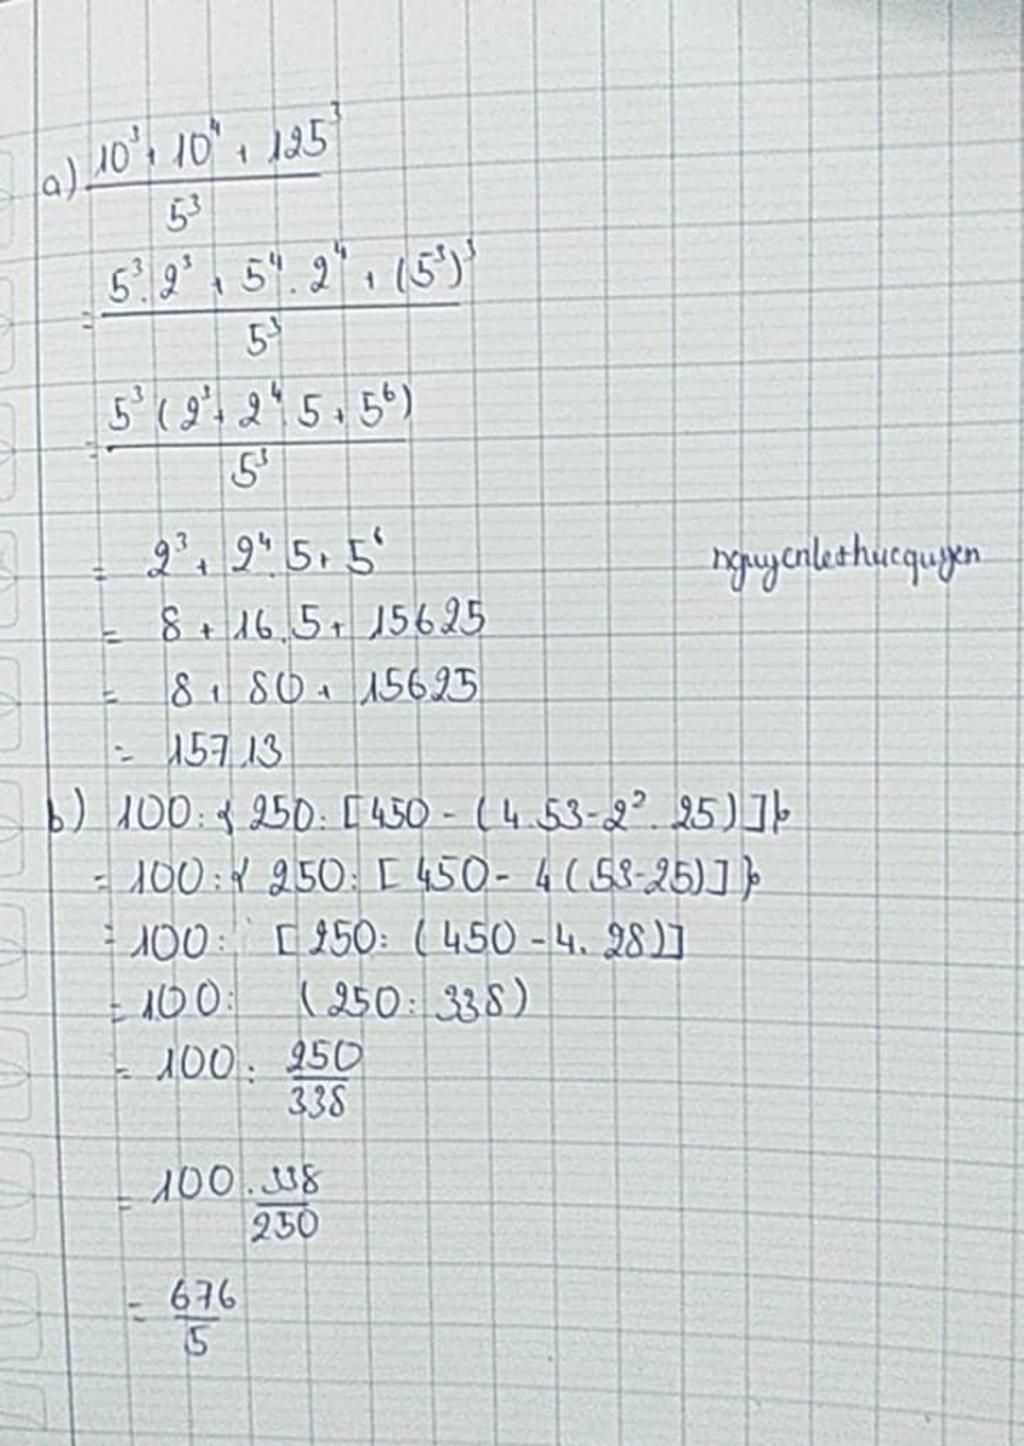 a) \frac{10³ + 10⁴ + 125³}{5³}
= \frac{5³.2³ + 5⁴.2⁴ + (5³)³}{5³}
= \frac{5³(2³ + 2⁴.5 + 5⁶)}{5³}
= 2³ + 2⁴.5 + 5⁶
nguyenlethucquyen
= 8 + 16.5 + 15625
= 8 + 80 + 15625
= 15713
b) 100:{250:[450-(4.53-2².25)]}
= 100:{250:[450-4(53-25)]}
= 100: [250:(450-4.28)]
= 100: (250:338)
= 100: \frac{250}{338}
= 100.\frac{338}{250}
= \frac{676}{5}